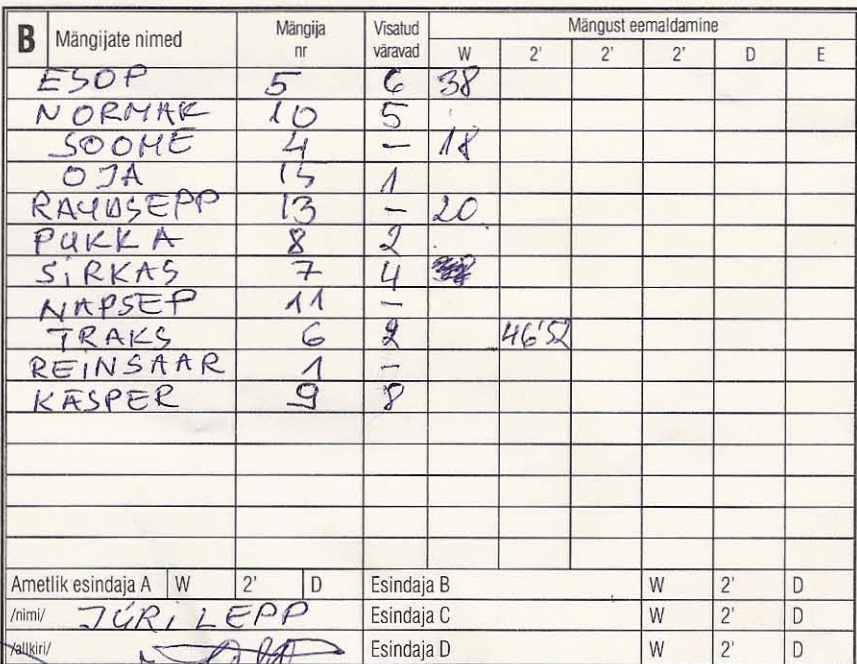 B Mängijate nimed Mängija nr Visatud väravad Mängust eemaldamine
W 2' 2' 2' D E
ESOP 5 6 38
NORMAK 10 5
SOOME 4 – 18
OJA 15 1
RAUDSEPP 13 – 20
PUKKA 8 2
SIRKAS 7 4
NAPSEP 11 –
TRAKS 6 2 46'52
REINSAAR 1 –
KÄSPER 9 8
Ametlik esindaja A W 2' D Esindaja B W 2' D
/nimi/ JÜRI LEPP Esindaja C W 2' D
/allkiri/ Esindaja D W 2' D